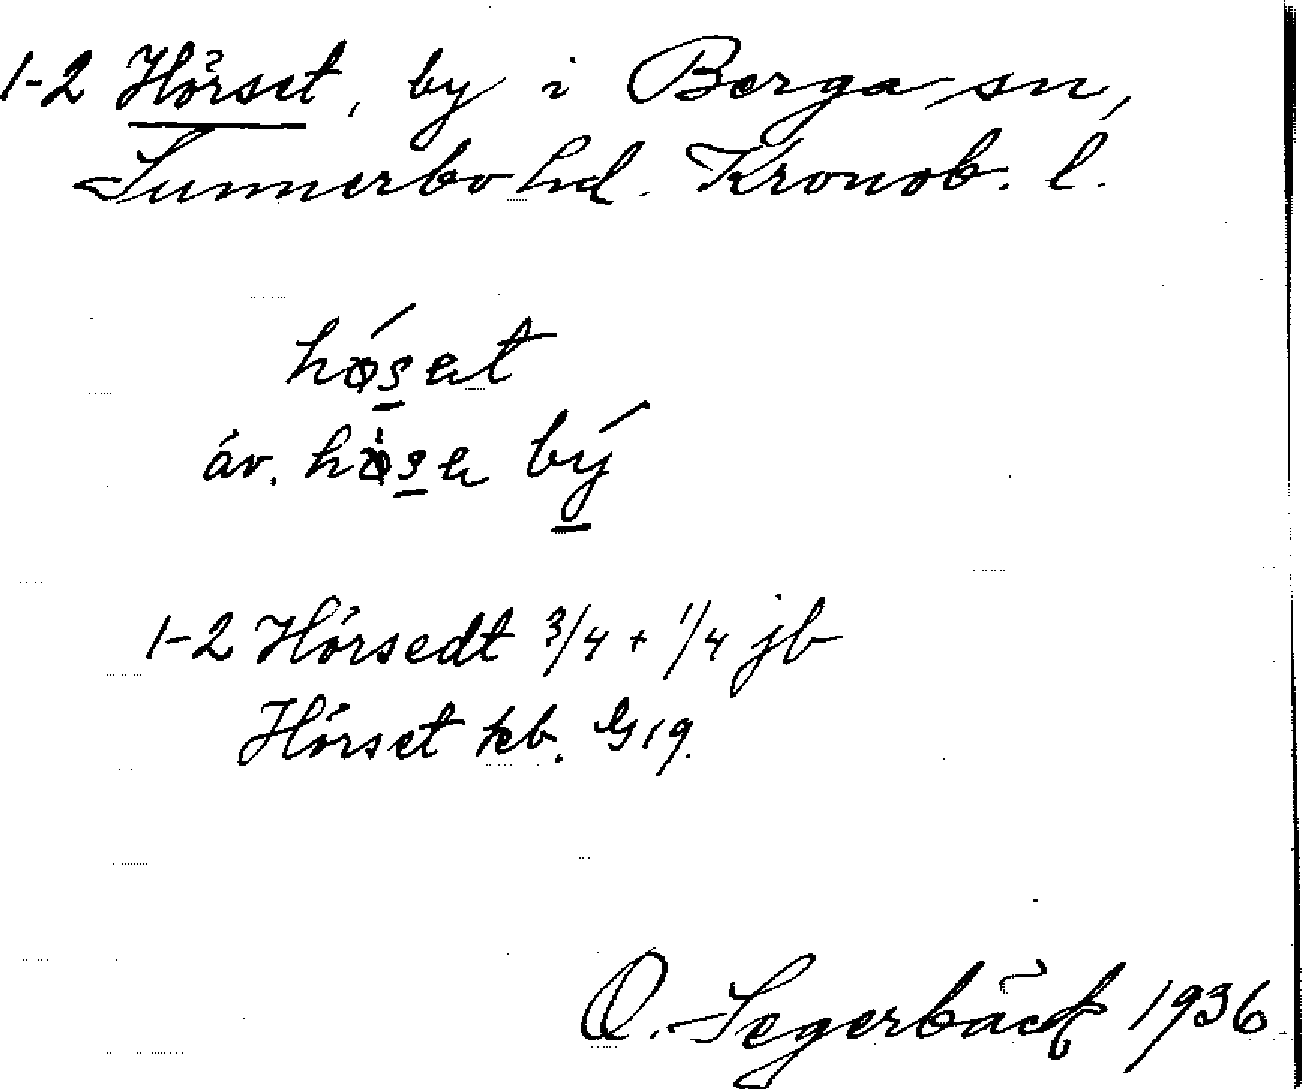 1-2 Hörset, by i Berga sn,
Sunnerbo hd. Kronob. l.
hǿset
äv. høse bý
1-2 Hörsedt 3/4 + 1/4 jb
Hörset kb. G19.
O. Segerbäck 1936